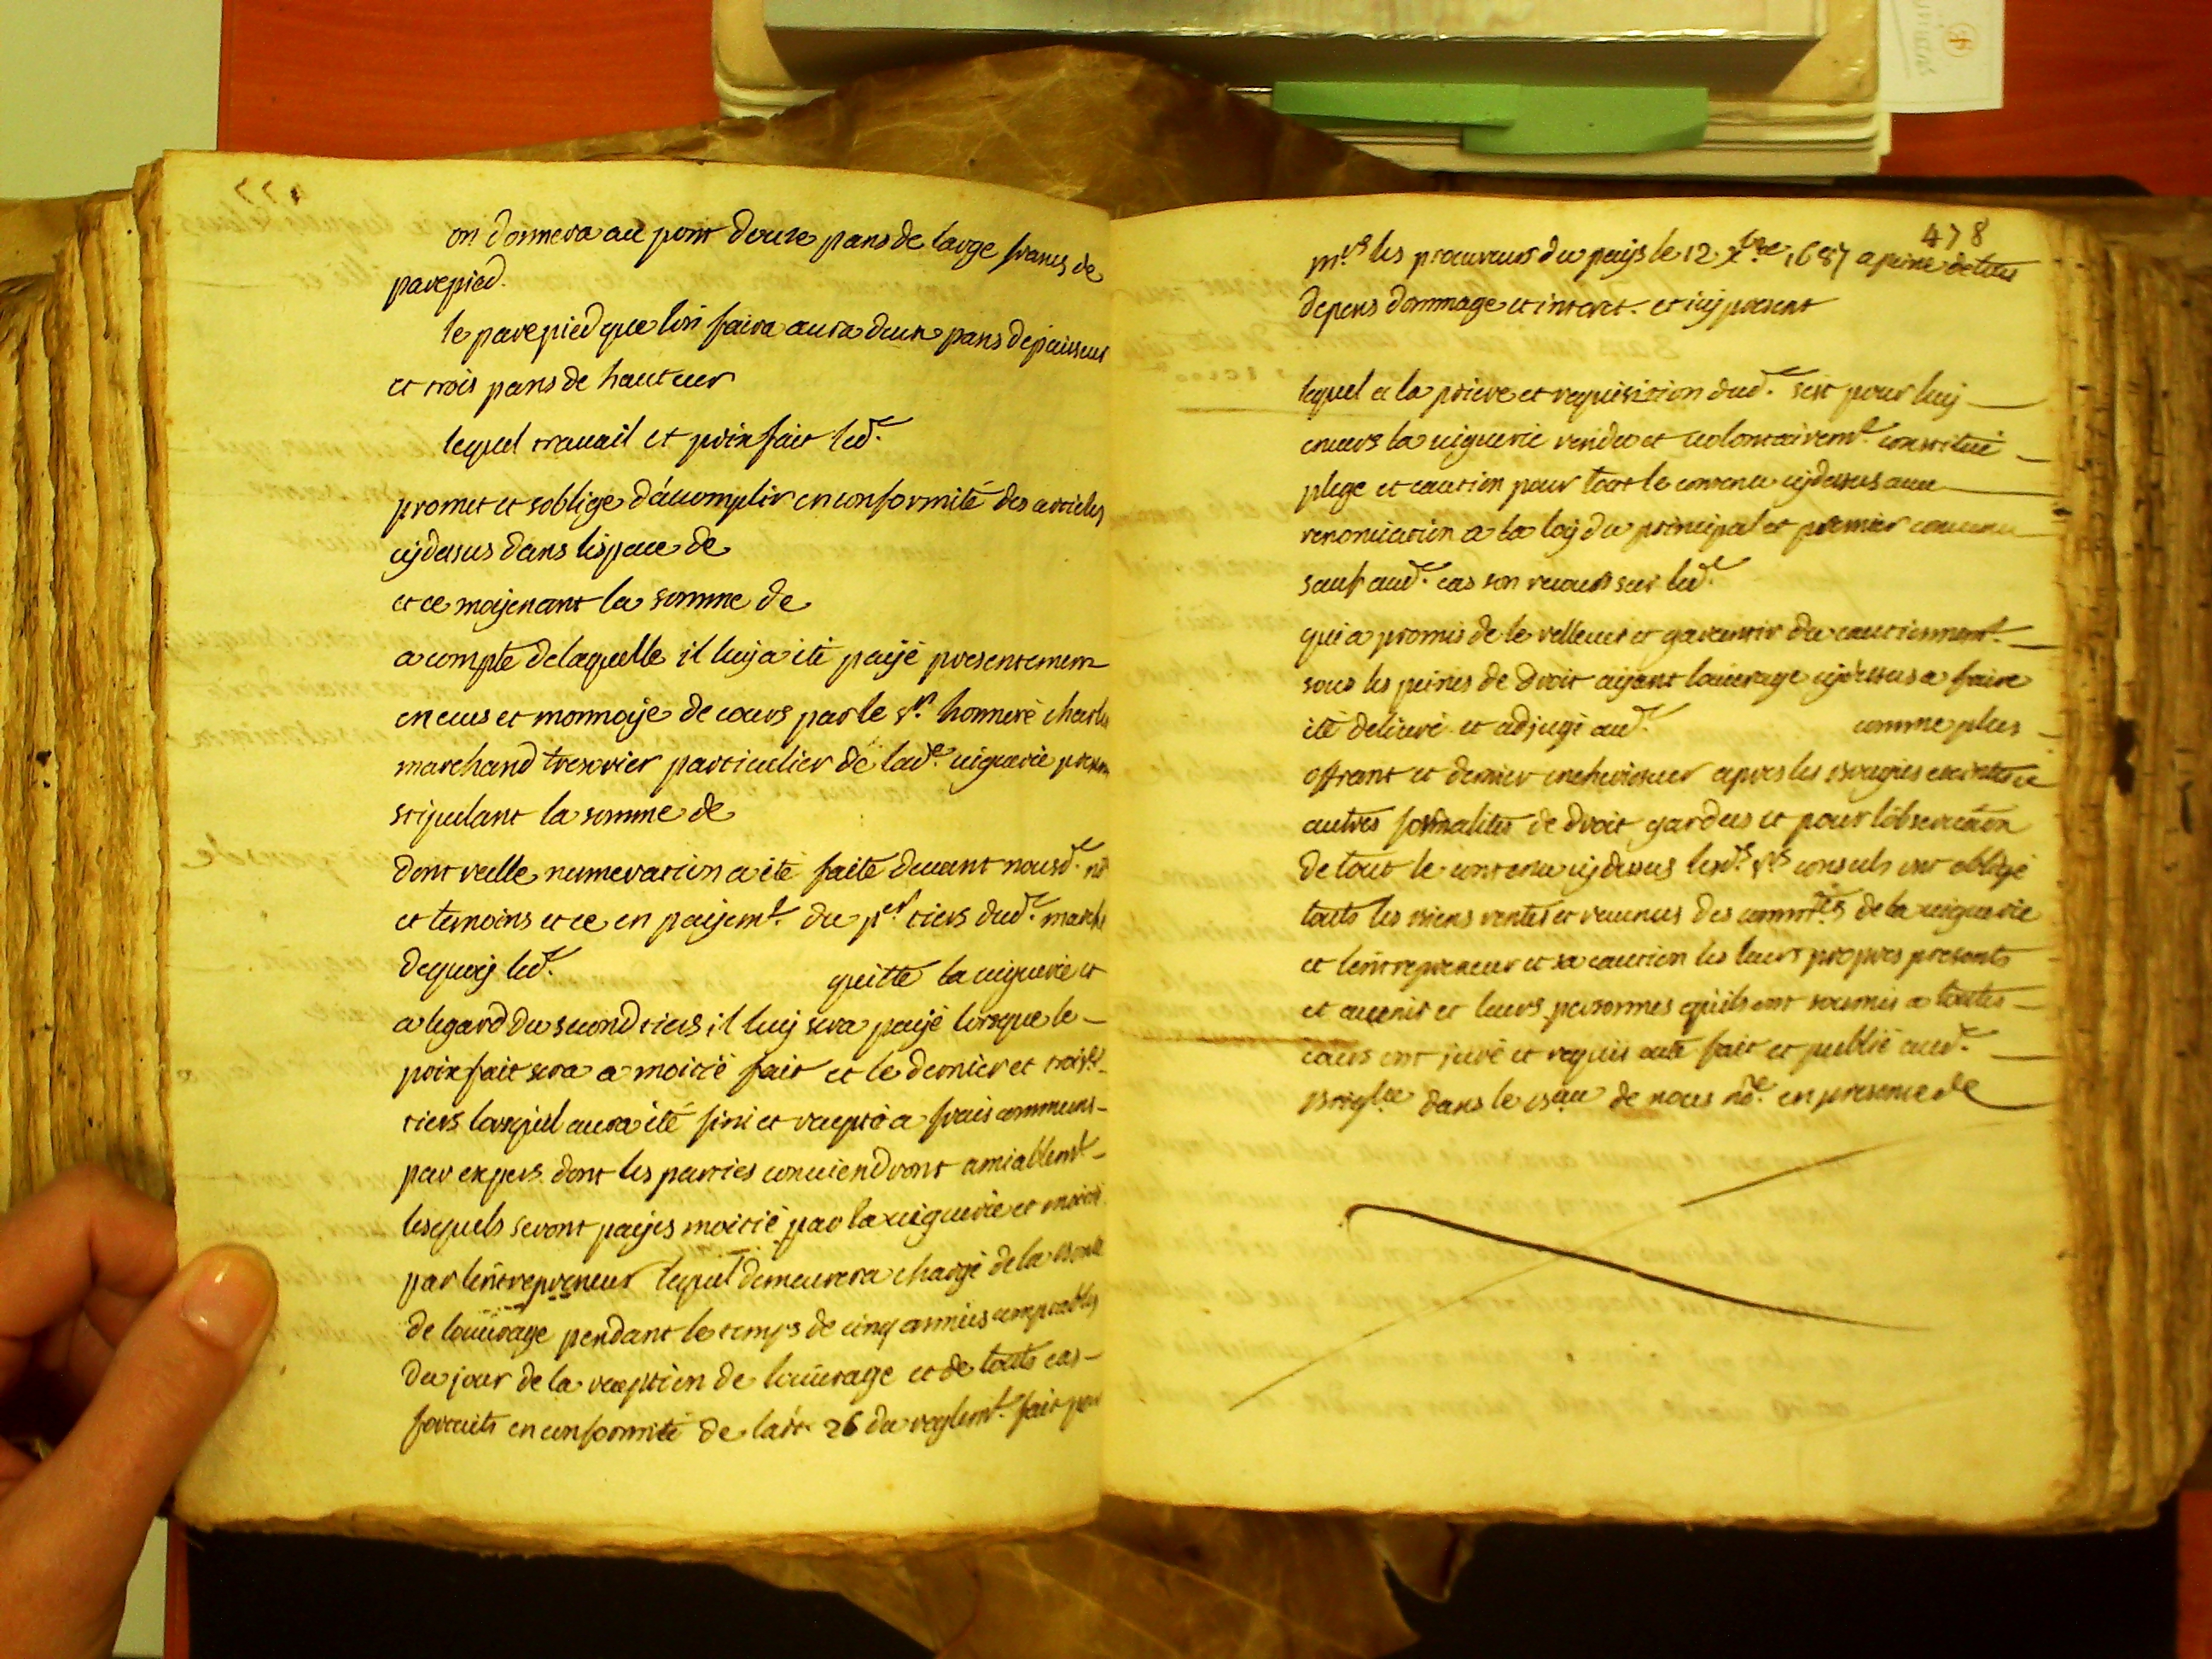 on donnera au pont douze pans de large francs de
parepied.
le parepied que lon faira aura deux pans depaisseur
et trois pans de hauteur
lequel trauail et prixfait led.
promet et soblige d'acomplir en conformité des articles
cydessus dans lespace de
et ce moyenant la somme de
a compte delaquelle il luy a ete payé presentement
en ecus et monnoye de cours par le sr. honneré charles
marchand tresorier particulier de lade. uiguerie present
stipulant la somme de
dont reelle numeration a été faite deuant nousd. nre
et temoins et ce en payemt. du per tiers dud. marché
dequoy led. quitte la uiguerie et
a legard du second tiers il luy sera payé lorsque le
prixfait sera a moitié fait et le dernier et troise.
tiers lorsquil aura été fini et recepté a frais communs
par expers dont les parties conuiendront amiablemt
lesquels seront payes moitié par la uiguerie et moitié
par lentrepreneur lequel demeurera chargé de la
de louurage pendant le temps de cinq années comptables
du jour de la reception de louurage et de touts cas
fortuits en conformité de lart. 26 du reglemt. fait par
478
mrs les procureurs du pays le 12 xbre 1687 a peine de tous
depens dommage et interet. et icy present
lequel a la priere et requisition dud. sest pour luy
enuers la uiguerie rendu et uolontairemt. constitué
plege et caution pour tout le contenu cydessus auec
renonciation a la loy du principal et premier conuenu
sauf aud. cas son recours sur led.
qui a promis de le relleuer et garentir du cautionnemt.
sous les peines de droit ayant louurage cydessus a faire
été deliuré et adjugé aud. comme plus
offrant et dernier encherisseur apres les bougies eteintes et
autres formalites de droit gardees et pour lobseruation
de tout le contenu cydessus lesds. srs consuls ont obligé
touts les biens rentes et reuenus des commtes de la uiguerie
et lentrepreneur et sa caution les leurs propres presents
et auenir et leurs personnes quils ont soumis a toutes
cours ont juré et requis acte fait et publié aud.
briglle dans le bau de nous nre. en presence de